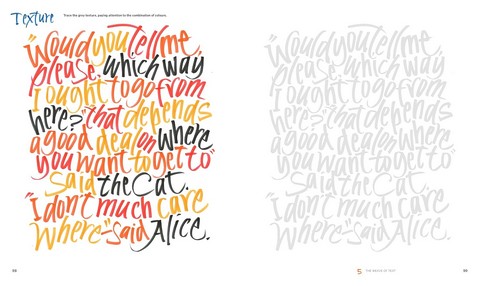 Texture
Trace the grey texture, paying attention to the combination of colours.
"Would you Tell me
please, which way
I ought to go from
here?" "that depends
a good deal on where
you want to get to"
said the Cat.
"I don't much care
where–" said Alice.
"Would you Tell me
please, which way
I ought to go from
here?" "that depends
a good deal on where
you want to get to"
said the Cat.
"I don't much care
where–" said Alice.
5 THE OF TEXT